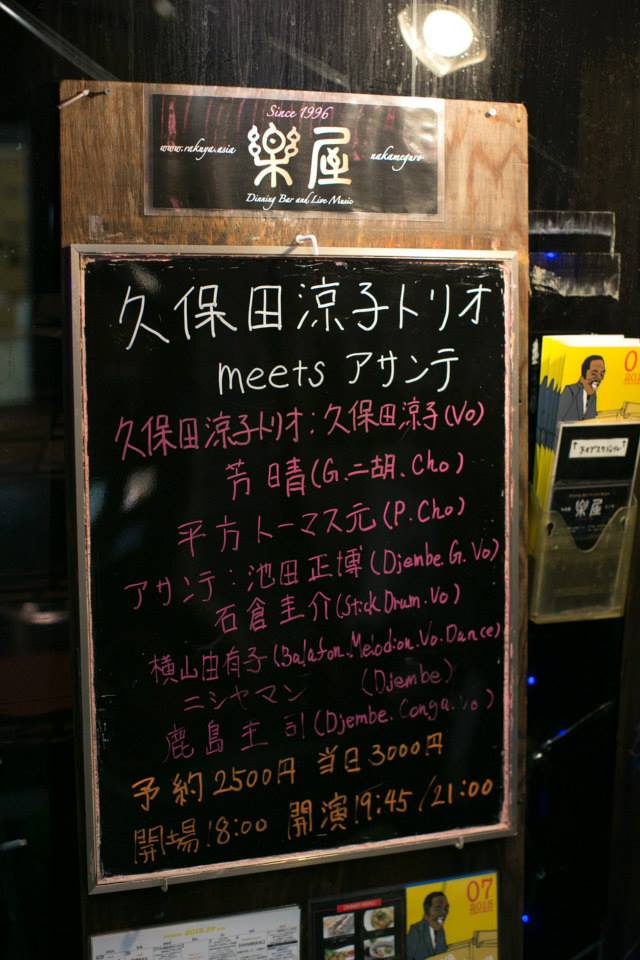 Since 1996
www.rakuya.asia
樂屋
nakameguro
Dinning Bar and Live Music
久保田涼子トリオ
meets アサンテ
久保田涼子トリオ:久保田涼子(Vo)
芳晴(G.二胡.Cho)
平方トーマス元(P.Cho)
アサンテ:池田正博(Djembe.G.Vo)
石倉圭介(Stick Drum.Vo)
横山由有子(Balafon.Melodion.Vo.Dance)
ニシヤマン (Djembe)
鹿島圭司(Djembe.Conga.Vo)
予約2500円 当日3000円
開場18:00 開演19:45/21:00
樂屋
07
2015